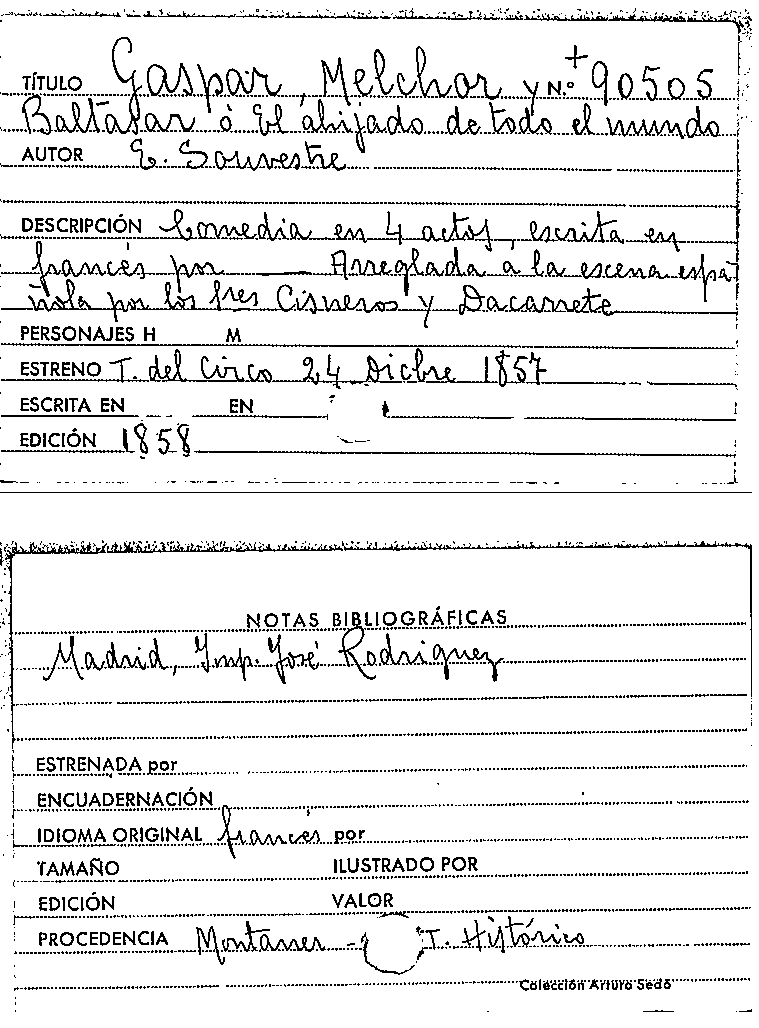 TÍTULO Gaspar, Melchor y N.º + 90505
Baltasar ó El ahijado de todo el mundo
AUTOR E. Souvestre
DESCRIPCIÓN Comedia en 4 actos, escrita en
francés por ____ Arreglada a la escena espa-
ñola por los Sres Cisneros y Dacarrete
PERSONAJES H M
ESTRENO T. del Circo 24 Dicbre 1857
ESCRITA EN EN
EDICIÓN 1858
NOTAS BIBLIOGRÁFICAS
Madrid, Imp. José Rodriguez
ESTRENADA por
ENCUADERNACIÓN
IDIOMA ORIGINAL francés por
TAMAÑO ILUSTRADO POR
EDICIÓN VALOR
PROCEDENCIA Montaner - T. Histórico
Colección Arturo Sedó